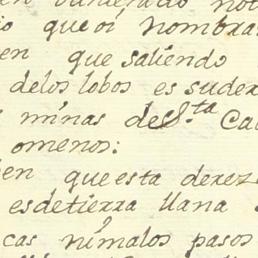 io que oi nombrar
en que saliendo
delos lobos es suder
s minas de S.ta Ca
omenos:
en que esta derez
es de tierra llana
cas ni malos pasos